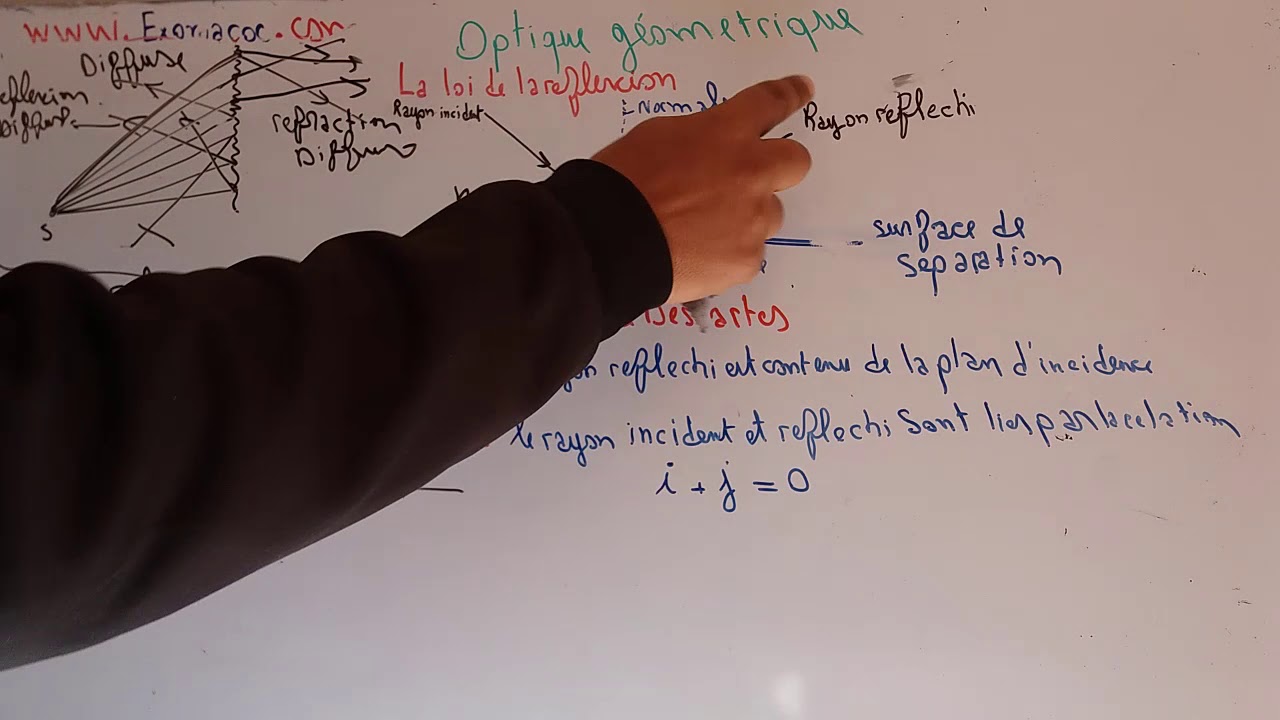 www.Exoriacoc.com
Optique géometrique
Diffuse
La loi de la reflexcion
Rayon incident
Normal
Rayon réflechi
refraction
Diffuse
S
surface de
separation
Des artes
reflechi est contenu de la plan d'incidence
le rayon incident et reflechi Sont lies par la relation
i + j = 0